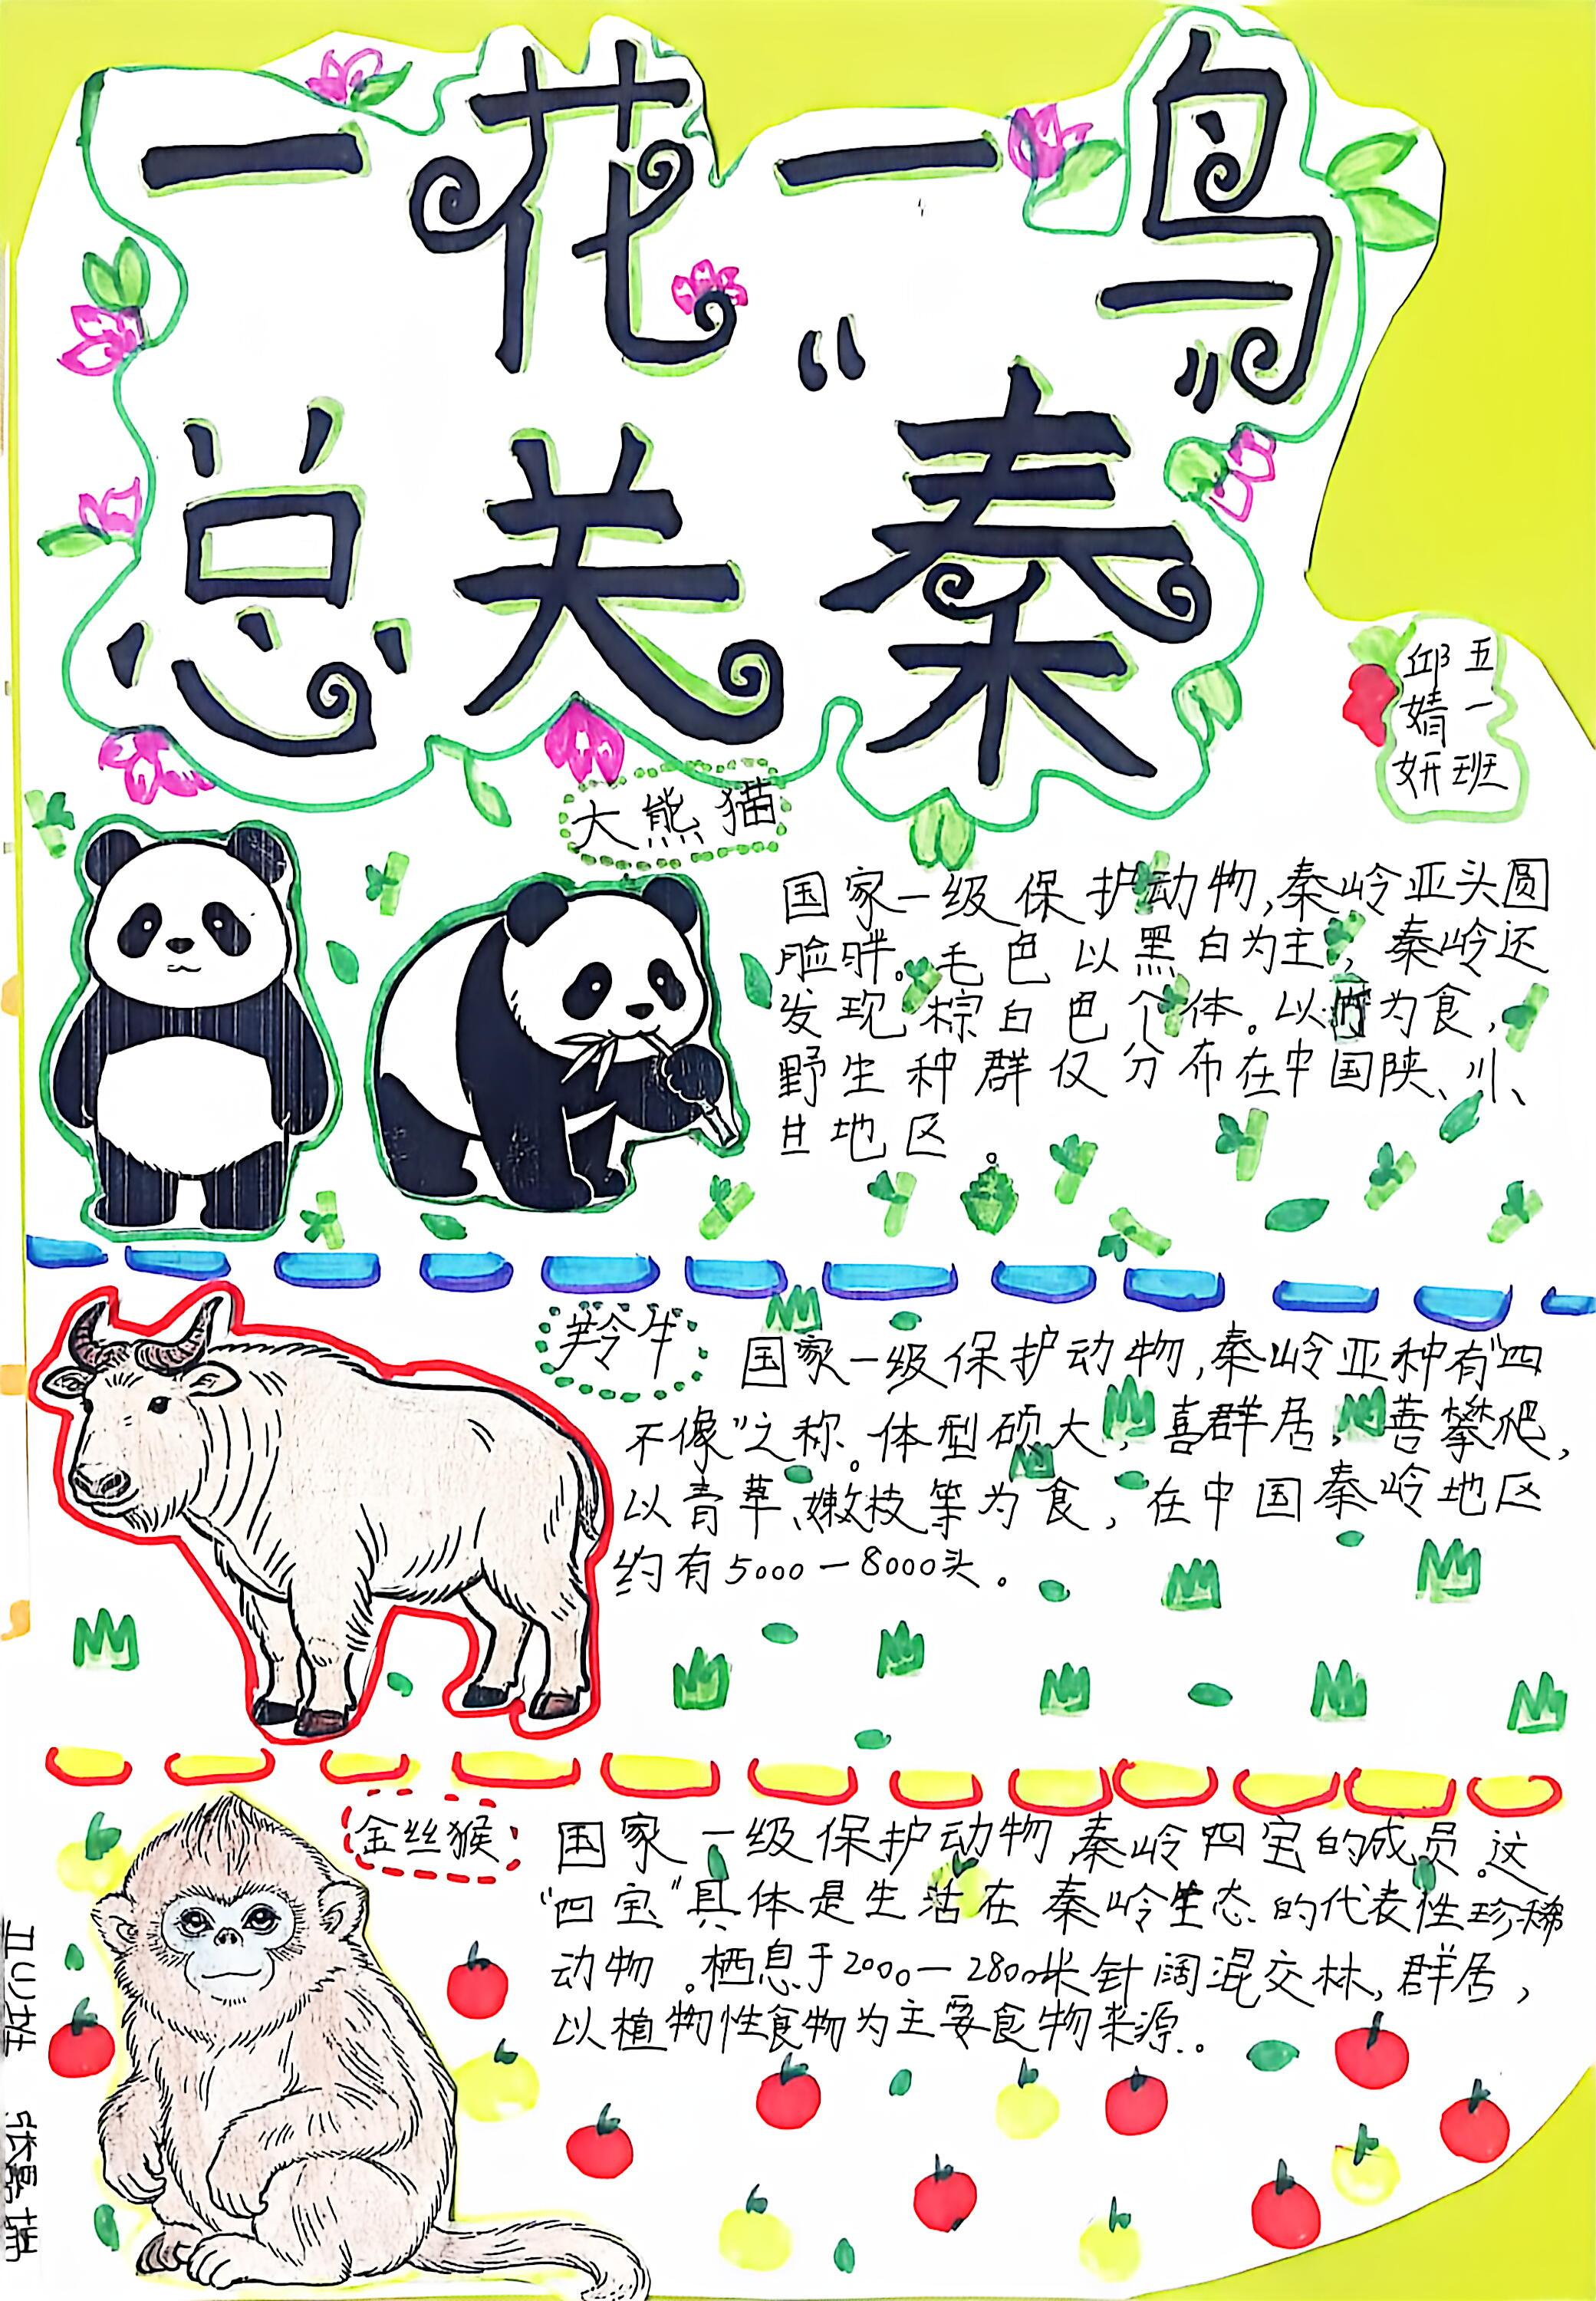 一花一鸟
总关“秦”
五一班
邱婧妍
大熊猫
国家一级保护动物,秦岭亚头圆
脸胖。毛色以黑白为主,秦岭还
发现棕白色个体。以竹为食,
野生种群仅分布在中国陕、川、
甘地区。
羚牛
国家一级保护动物,秦岭亚种有“四
不像”之称。体型硕大,喜群居,善攀爬,
以青草、嫩枝等为食,在中国秦岭地区
约有5000-8000头。
金丝猴
国家一级保护动物 秦岭四宝的成员。这
“四宝”具体是生活在秦岭生态的代表性珍稀
动物。栖息于2000-2800米针阔混交林,群居,
以植物性食物为主要食物来源。